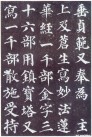 垂貞範又奉為
上及蒼生寫妙法蓮
華經一千部金字三
十六部用鎮寶塔又
寫一千部散施受持